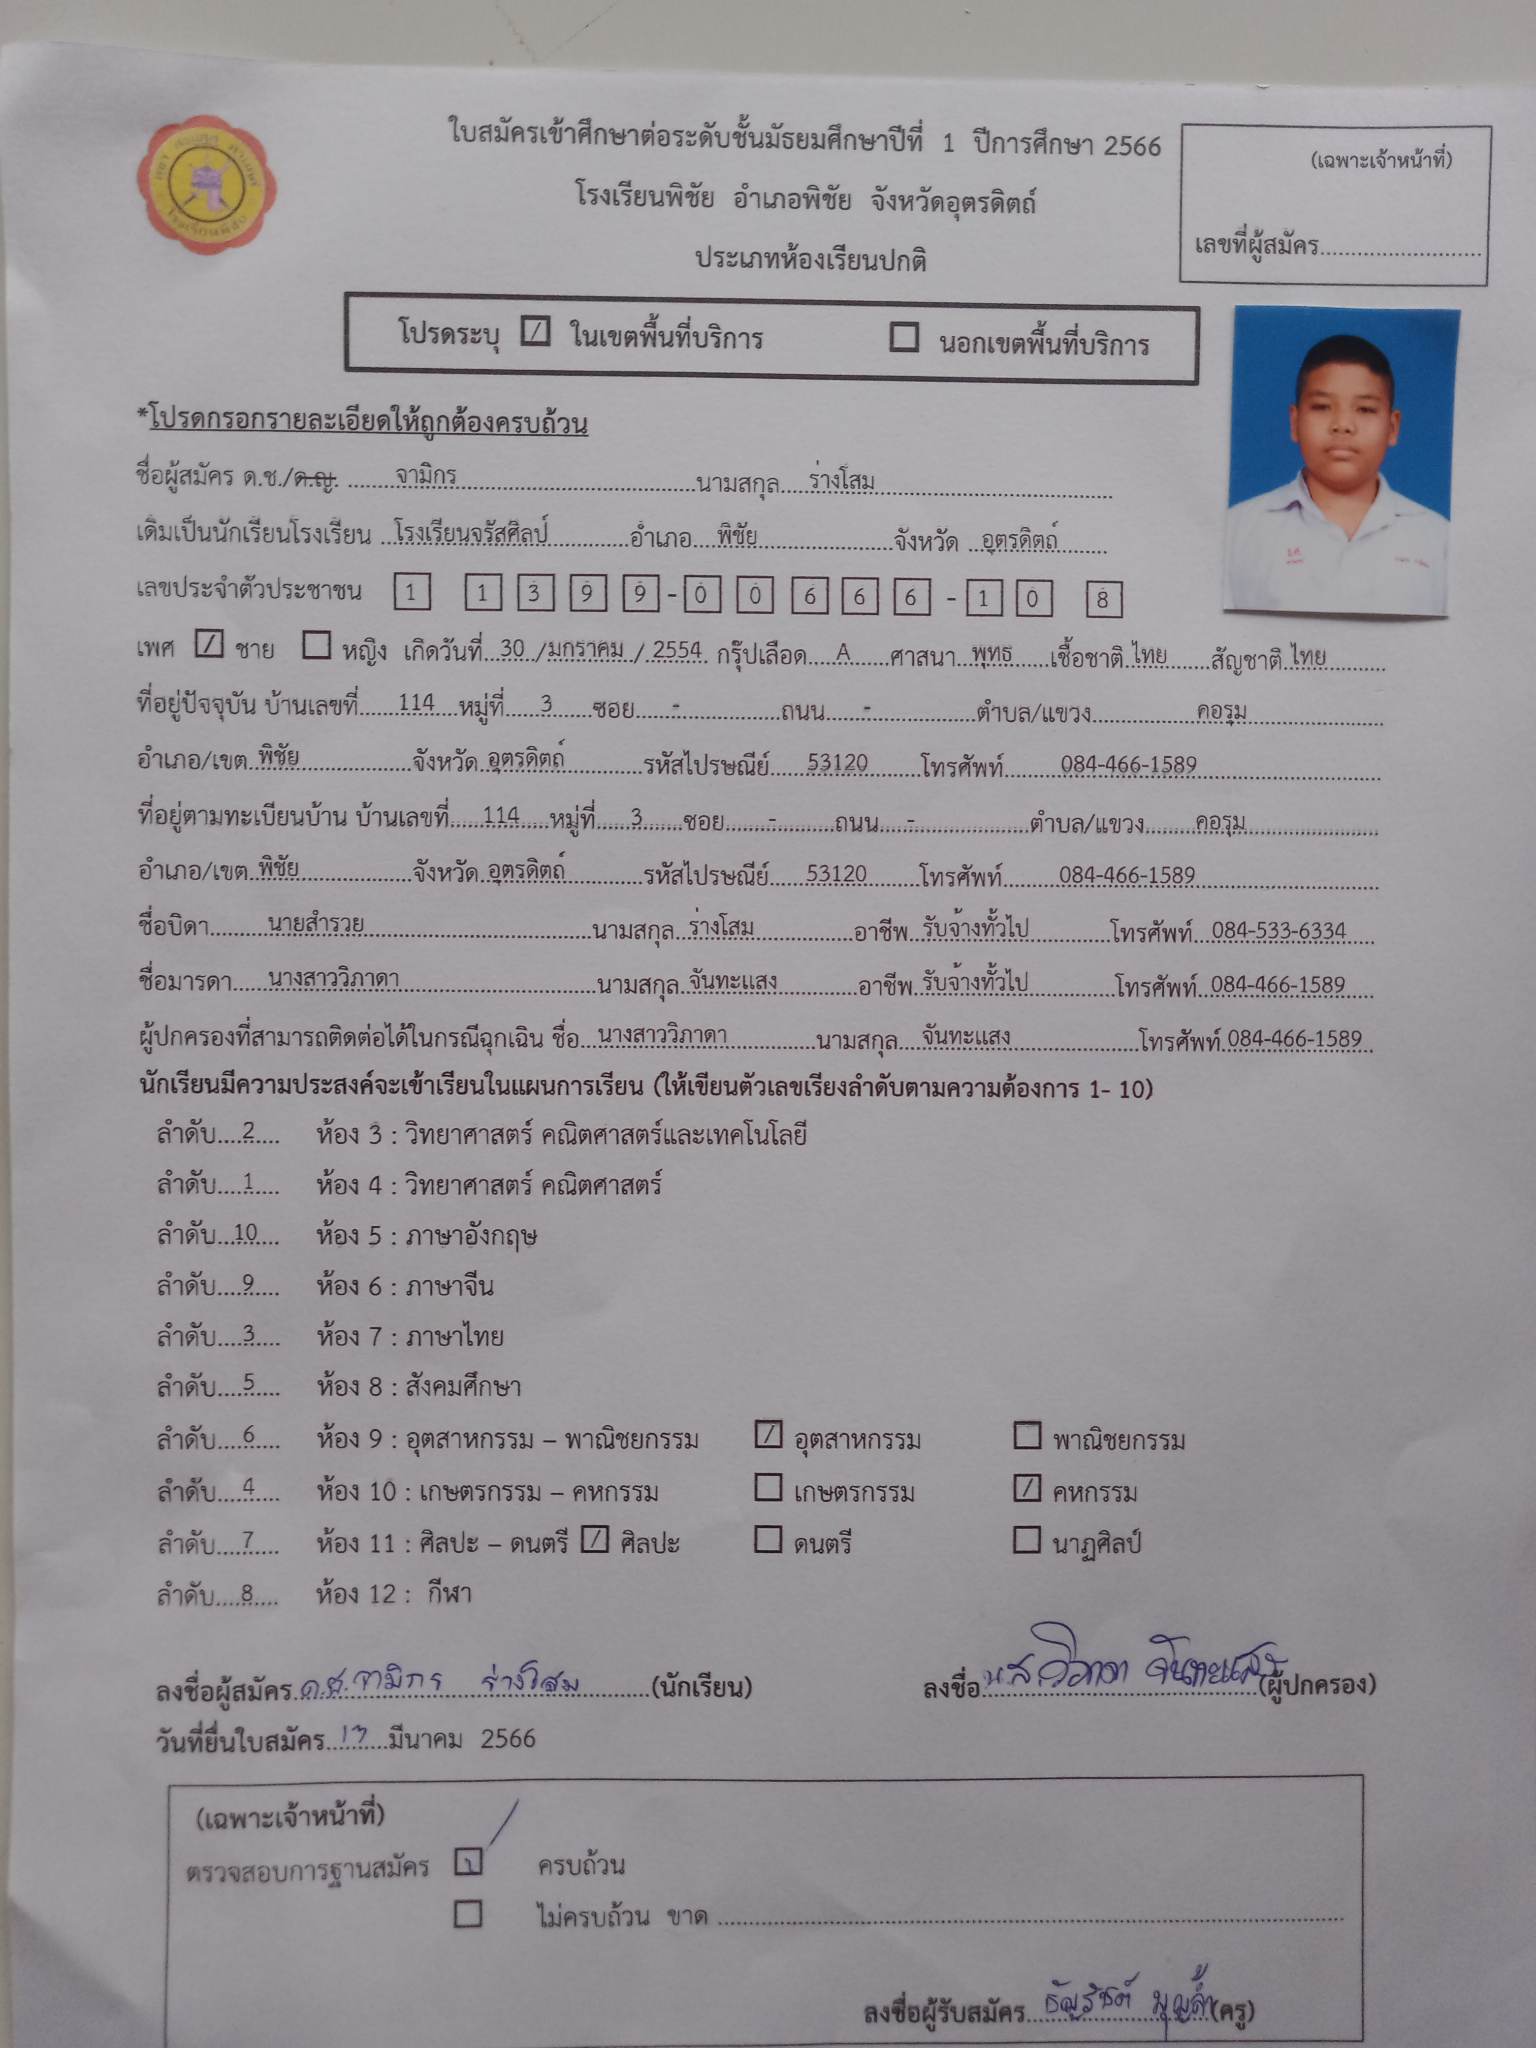 ใบสมัครเข้าศึกษาต่อระดับชั้นมัธยมศึกษาปีที่ 1 ปีการศึกษา 2566
(เฉพาะเจ้าหน้าที่)
โรงเรียนพิชัย อำเภอพิชัย จังหวัดอุตรดิตถ์
เลขที่ผู้สมัคร..........................
ประเภทห้องเรียนปกติ
โปรดระบุ ☑ ในเขตพื้นที่บริการ ☐ นอกเขตพื้นที่บริการ
*โปรดกรอกรายละเอียดให้ถูกต้องครบถ้วน
ชื่อผู้สมัคร ด.ช./ด.ญ. ........จามิกร........นามสกุล.....ร่างโสม........
เดิมเป็นนักเรียนโรงเรียน ...โรงเรียนจรัสศิลป์........อำเภอ....พิชัย........จังหวัด ..อุตรดิตถ์........
เลขประจำตัวประชาชน 1 1 3 9 9 - 0 0 6 6 6 - 1 0 8
เพศ ☑ ชาย ☐ หญิง เกิดวันที่...30.../มกราคม./.2554. กรุ๊ปเลือด.....A.....ศาสนา..พุทธ.....เชื้อชาติ.ไทย.......สัญชาติ.ไทย........
ที่อยู่ปัจจุบัน บ้านเลขที่......114...หมู่ที่.....3......ซอย.....-........ถนน......-........ตำบล/แขวง........คอรุม........
อำเภอ/เขต..พิชัย........จังหวัด..อุตรดิตถ์........รหัสไปรษณีย์.....53120.......โทรศัพท์........084-466-1589........
ที่อยู่ตามทะเบียนบ้าน บ้านเลขที่.....114....หมู่ที่.....3......ซอย......-........ถนน.....-........ตำบล/แขวง........คอรุม........
อำเภอ/เขต..พิชัย........จังหวัด..อุตรดิตถ์........รหัสไปรษณีย์.....53120.......โทรศัพท์........084-466-1589........
ชื่อบิดา........นายสำรวย........นามสกุล..ร่างโสม........อาชีพ..รับจ้างทั่วไป........โทรศัพท์...084-533-6334....
ชื่อมารดา.....นางสาววิภาดา........นามสกุล.จันทะแสง........อาชีพ..รับจ้างทั่วไป........โทรศัพท์..084-466-1589....
ผู้ปกครองที่สามารถติดต่อได้ในกรณีฉุกเฉิน ชื่อ...นางสาววิภาดา........นามสกุล....จันทะแสง........โทรศัพท์.084-466-1589..
นักเรียนมีความประสงค์จะเข้าเรียนในแผนการเรียน (ให้เขียนตัวเลขเรียงลำดับตามความต้องการ 1- 10)
ลำดับ....2.... ห้อง 3 : วิทยาศาสตร์ คณิตศาสตร์และเทคโนโลยี
ลำดับ....1.... ห้อง 4 : วิทยาศาสตร์ คณิตศาสตร์
ลำดับ...10.... ห้อง 5 : ภาษาอังกฤษ
ลำดับ....9.... ห้อง 6 : ภาษาจีน
ลำดับ....3.... ห้อง 7 : ภาษาไทย
ลำดับ....5.... ห้อง 8 : สังคมศึกษา
ลำดับ....6.... ห้อง 9 : อุตสาหกรรม – พาณิชยกรรม ☑ อุตสาหกรรม ☐ พาณิชยกรรม
ลำดับ....4.... ห้อง 10 : เกษตรกรรม – คหกรรม ☐ เกษตรกรรม ☑ คหกรรม
ลำดับ....7.... ห้อง 11 : ศิลปะ – ดนตรี ☑ ศิลปะ ☐ ดนตรี ☐ นาฏศิลป์
ลำดับ....8.... ห้อง 12 : กีฬา
ลงชื่อผู้สมัคร.ด.ช.จามิกร ร่างโสม........(นักเรียน) ลงชื่อ.น.ส.วิภาดา จันทะแสง(ผู้ปกครอง)
วันที่ยื่นใบสมัคร..17....มีนาคม 2566
(เฉพาะเจ้าหน้าที่)
ตรวจสอบการฐานสมัคร ☑ ครบถ้วน
☐ ไม่ครบถ้วน ขาด ........................................
ลงชื่อผู้รับสมัคร........(ครู)